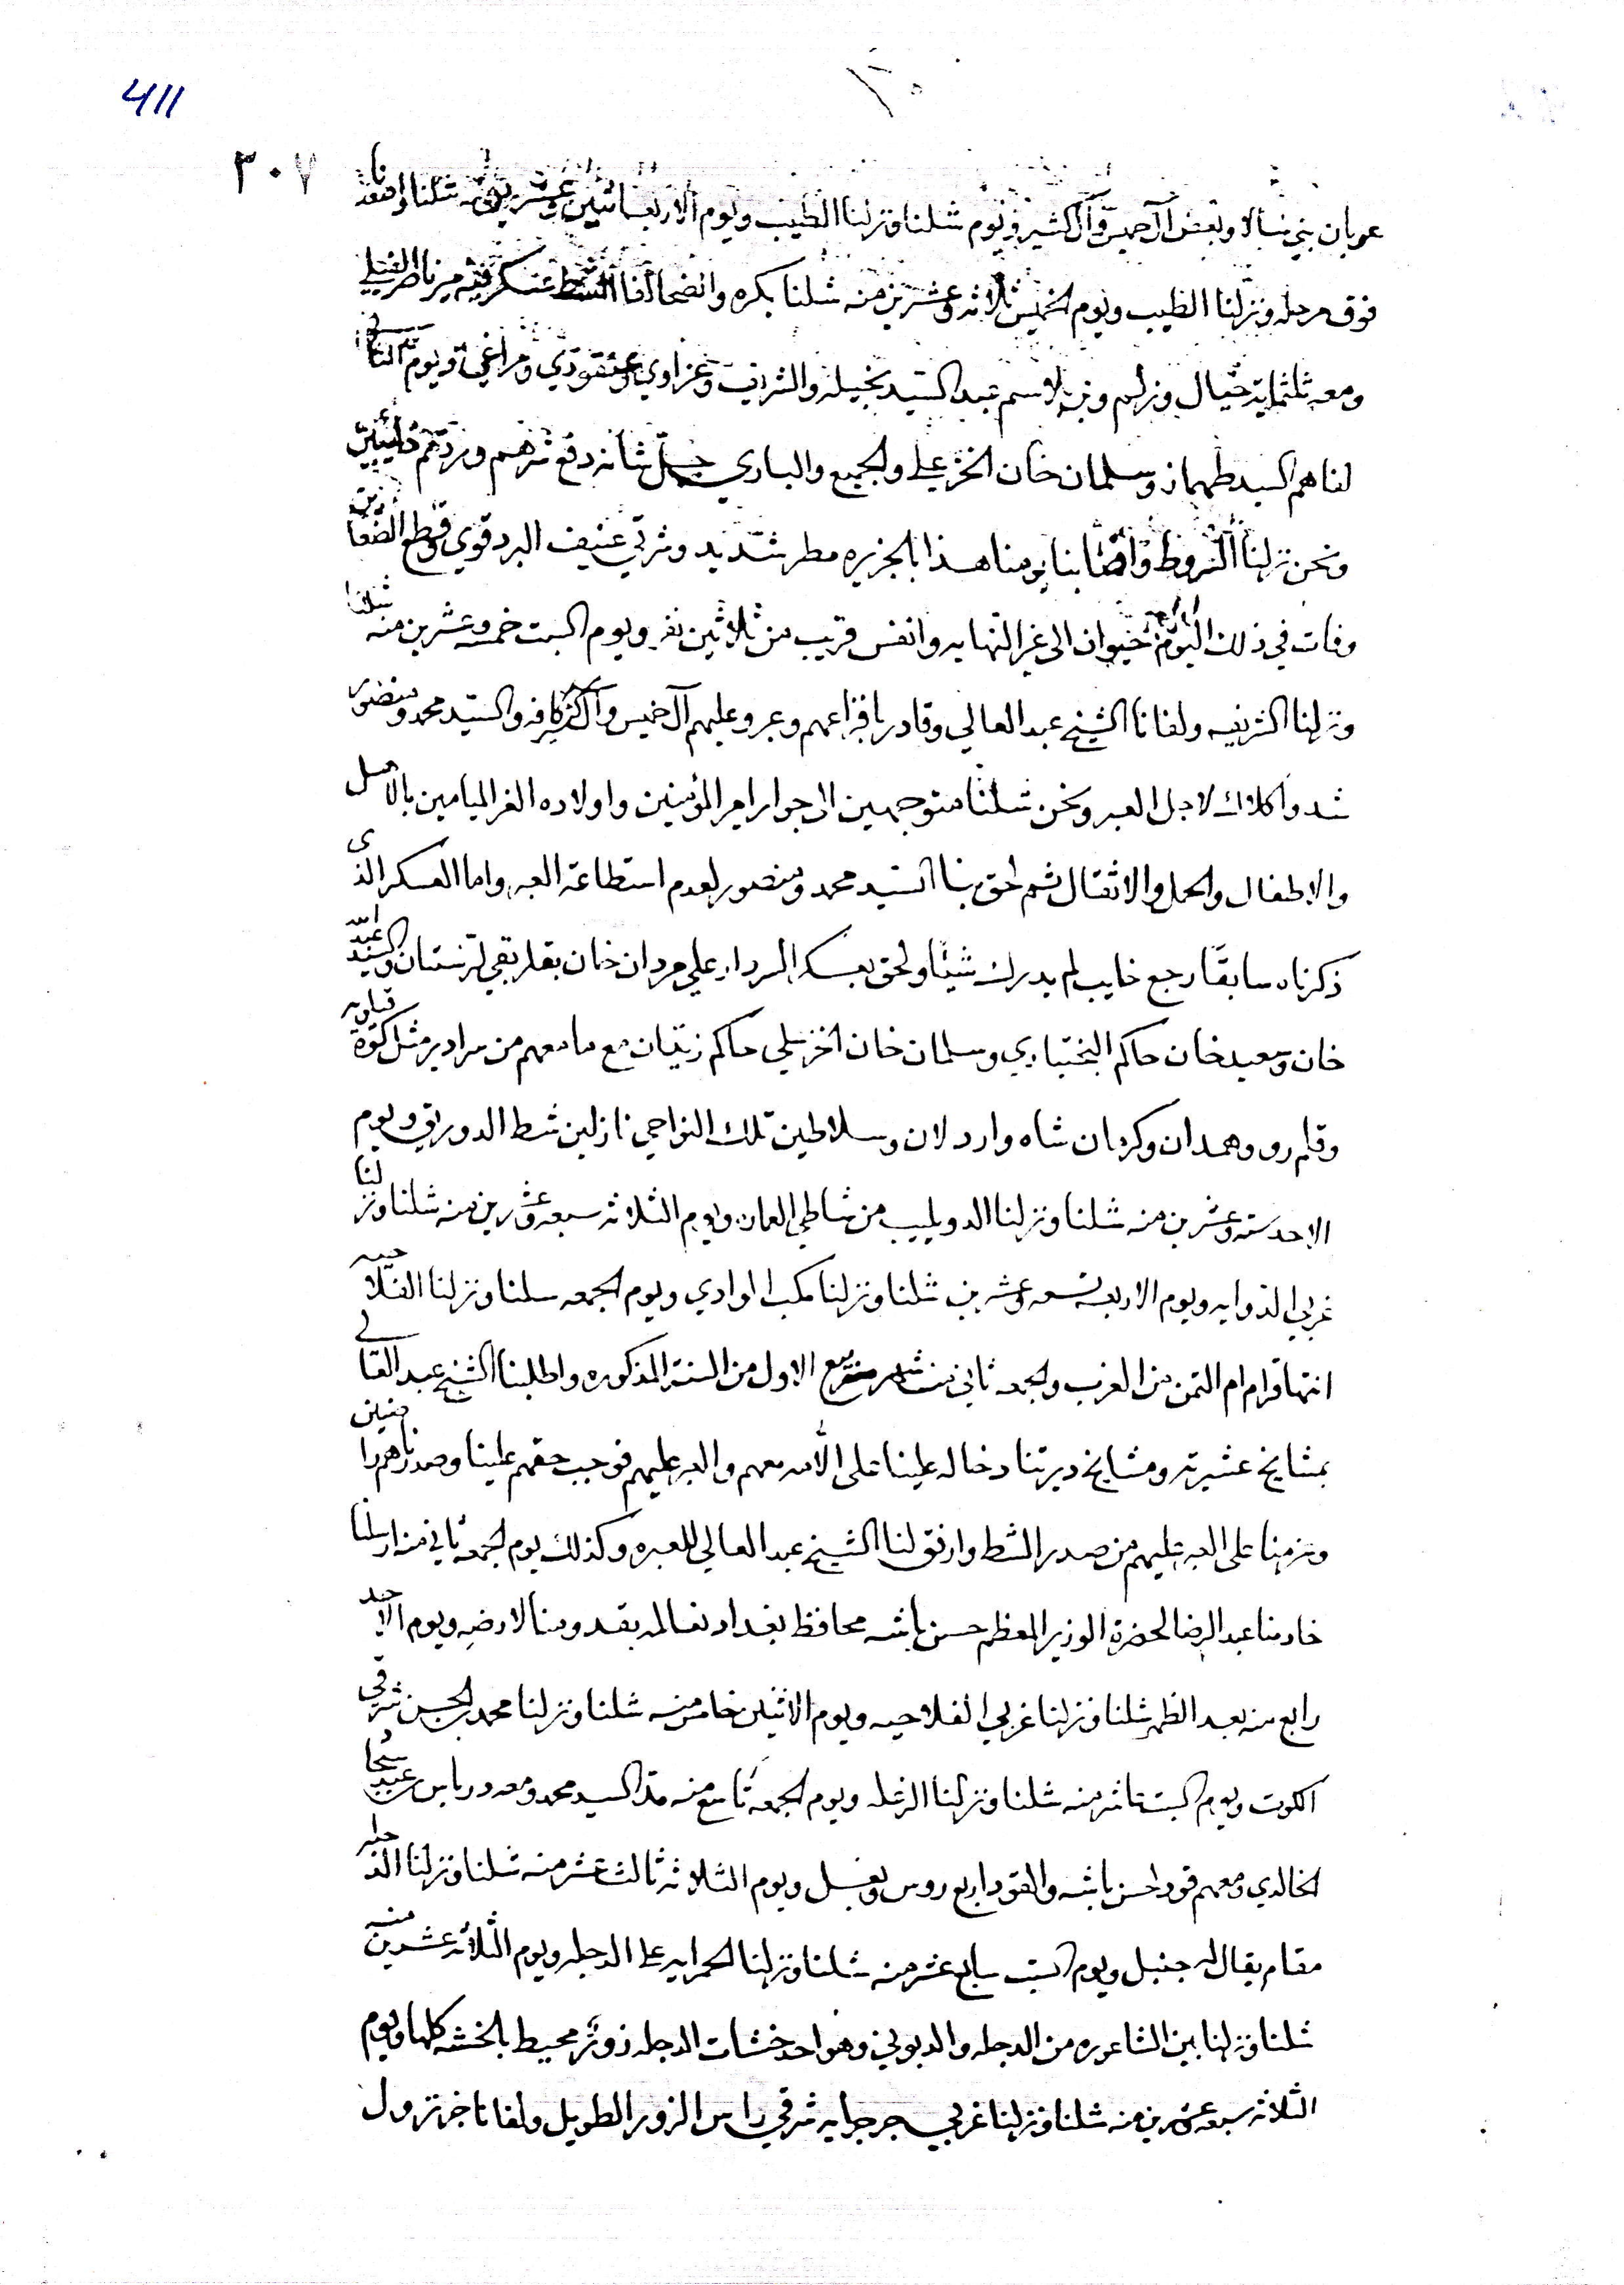 411
٣٠٧
عربان بني نسالا وبعض آل خميس وآل كثير ويوم شلنا ونزلنا الطيب ويوم الاربعا اثنين وعشرين منه شلنا واصعدنا
فوق مرحله ونزلنا الطيب ويوم الخميس ثلاثه وعشرين منه شلنا بكره وانضحا لفا الشط عسكر فيه ميرناظر الفيلي
ومعه ثلثمائة خيال وزلم وبني لاسم عبد السيد بخيله والشريف وغزاوي وعنقودي ومراغي ويوم
لناهم السيد طهماز وسلمان خان الخزعلي والجميع والباري جل شأنه دفع شرهم وردهم خايبين
ونحن نزلنا الخروط واصابنا يومنا هذا بالجزيره مطر شديد وشرقي عنيف البرد قوي وقطع الضعا
وفات في ذلك اليوم حيوان الى غير النهايه وانفس قريب من ثلاثين نفر ويوم السبت خمسه وعشرين منه شلنا
ونزلنا الشريفه ولفانا الشيخ عبد العالي وقادر بافزاعهم وعبروا عليهم آل خميس وآل كثير كافه والسيد محمد ومنصور
شدوا كلاك لاجل العبر ونحن شلنا متوجهين الى جوار امير المؤمنين واولاده الغر الميامين بالاهل
والاطفال والحمل والاثقال ثم لحق بنا السيد محمد ومنصور لعدم استطاعة العبر واما العسكر الذى
ذكرناه سابقا رجع خايب لم يدرك شيئا ولحق بعسكر السردار علي مردان خان بقلربقي لرستان والسيد عبد الله
خان وسعيد خان حاكم البختياري وسلمان خان الخزعلي حاكم زيتان مع ما معهم من سرادير مثل كوه قيلويه
وقلم رو وهمدان وكرمان شاه واردلان وسلاطين تلك النواحي نازلين شط الدورق ويوم
الاحد سته وعشرين منه شلنا ونزلنا الدويليب من شاطي العمان ويوم الثلاثه سبعه وعشرين منه شلنا ونزلنا
غربي الدوايه ويوم الاربعه تسعه وعشرين شلنا ونزلنا مكب الوادي ويوم الجمعه سلنا ونزلنا الفلاحيه
انتها قرام ام التمن من الغرب والجمعه ثاني من شهر ربيع الاول من السنة المذكوره واطلبنا الشيخ عبد العالي
بمشايخ عشيرته ومشايخ ديرتنا دخاله علينا على الامر معهم والعبر عليهم فوجب حقهم علينا وصدرناهم راضين
وعزمنا على العبر عليهم من صدر الشط وارفق لنا الشيخ عبد العالي للعبره وكذلك يوم الجمعه ثاني منه ارسلنا
خادمنا عبد الرضا لحضرة الوزير المعظم حسن باشه محافظ بغداد نعالمه بقدومنا لارضه ويوم الاحد
رابع منه بعد الظهر شلنا ونزلنا غربي الفلاحيه ويوم الاثنين خامس منه شلنا ونزلنا محمد الحسن شرقي
الكوت ويوم السبت عاشر منه شلنا ونزلنا الرغله ويوم الجمعه تاسع منه مد السيد محمد ومعه درباس
الخالدي ومعهم قود لحسن باشه والقود اربع روس وبغل ويوم الثلاثه ثالث عشر منه شلنا ونزلنا الدجله
مقام يقال له جنبل ويوم السبت سابع عشر منه شلنا ونزلنا الحمرايه على الدجله ويوم الثلاثه عشرين منه
شلنا ونزلنا بين الشاعوره من الدجله والدبوني وهو احد خشات الدجله ذو ثر محيط بالخشه كلها ويوم
الثلاثه سبعه عشرين منه شلنا ونزلنا غربي جرجرايه شرقي راس الزور الطويل ولفانا خبر نزول